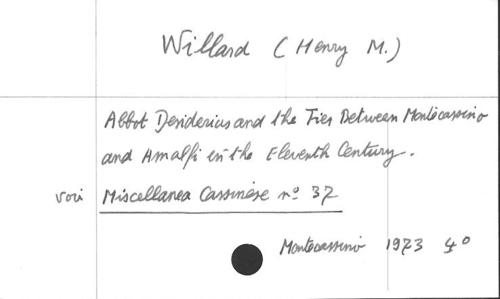 Willard (Henry M.)
Abbot Desiderius and the Ties Between Montecassino
and Amalfi in the Eleventh Century.
voir Miscellanea Cassinese nº 37
Montecassino 1973 4º